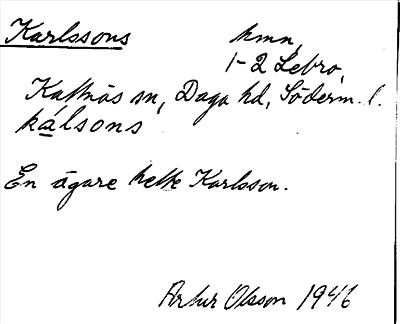 Karlssons hmn,
1-2 Lebro,
Kattnäs sn, Daga hd, Söderm. l.
kálsons
En ägare hette Karlsson.
Artur Olsson 1946